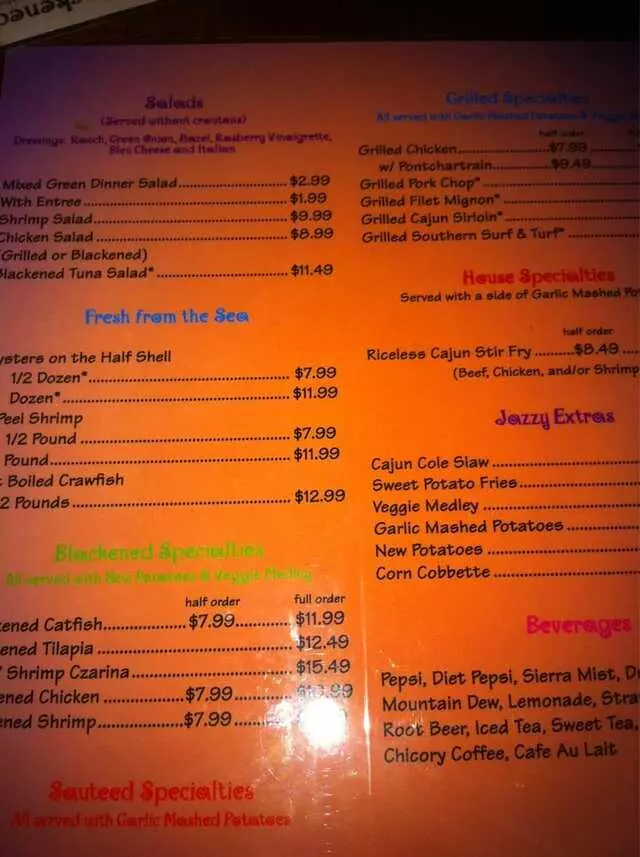 Salads
(Served without croutons)
Dressings: Ranch, Green Onion, Bazel, Rasberry Vinaigrette,
Bleu Cheese and Italian
Mixed Green Dinner Salad $2.99
With Entree $1.99
Shrimp Salad $9.99
Chicken Salad $8.99
(Grilled or Blackened)
Blackened Tuna Salad* $11.49
Fresh from the Sea
ysters on the Half Shell
1/2 Dozen* $7.99
Dozen* $11.99
Peel Shrimp
1/2 Pound $7.99
Pound $11.99
Boiled Crawfish
2 Pounds $12.99
Blackened Specialties
All served with New Potatoes & Veggie Medley
half order full order
ened Catfish $7.99 $11.99
ened Tilapia $12.49
Shrimp Czarina $15.49
ened Chicken $7.99
ened Shrimp $7.99
Sauteed Specialties
All served with Garlic Mashed Potatoes
Grilled Specialties
All served with Garlic Mashed Potatoes & Veggie
half order
Grilled Chicken $7.99
w/ Pontchartrain $9.49
Grilled Pork Chop*
Grilled Filet Mignon*
Grilled Cajun Sirloin*
Grilled Southern Surf & Turf*
House Specialties
Served with a side of Garlic Mashed Po
half order
Riceless Cajun Stir Fry $8.49
(Beef, Chicken, and/or Shrimp
Jazzy Extras
Cajun Cole Slaw
Sweet Potato Fries
Veggie Medley
Garlic Mashed Potatoes
New Potatoes
Corn Cobbette
Beverages
Pepsi, Diet Pepsi, Sierra Mist, D
Mountain Dew, Lemonade, Stra
Root Beer, Iced Tea, Sweet Tea,
Chicory Coffee, Cafe Au Lait